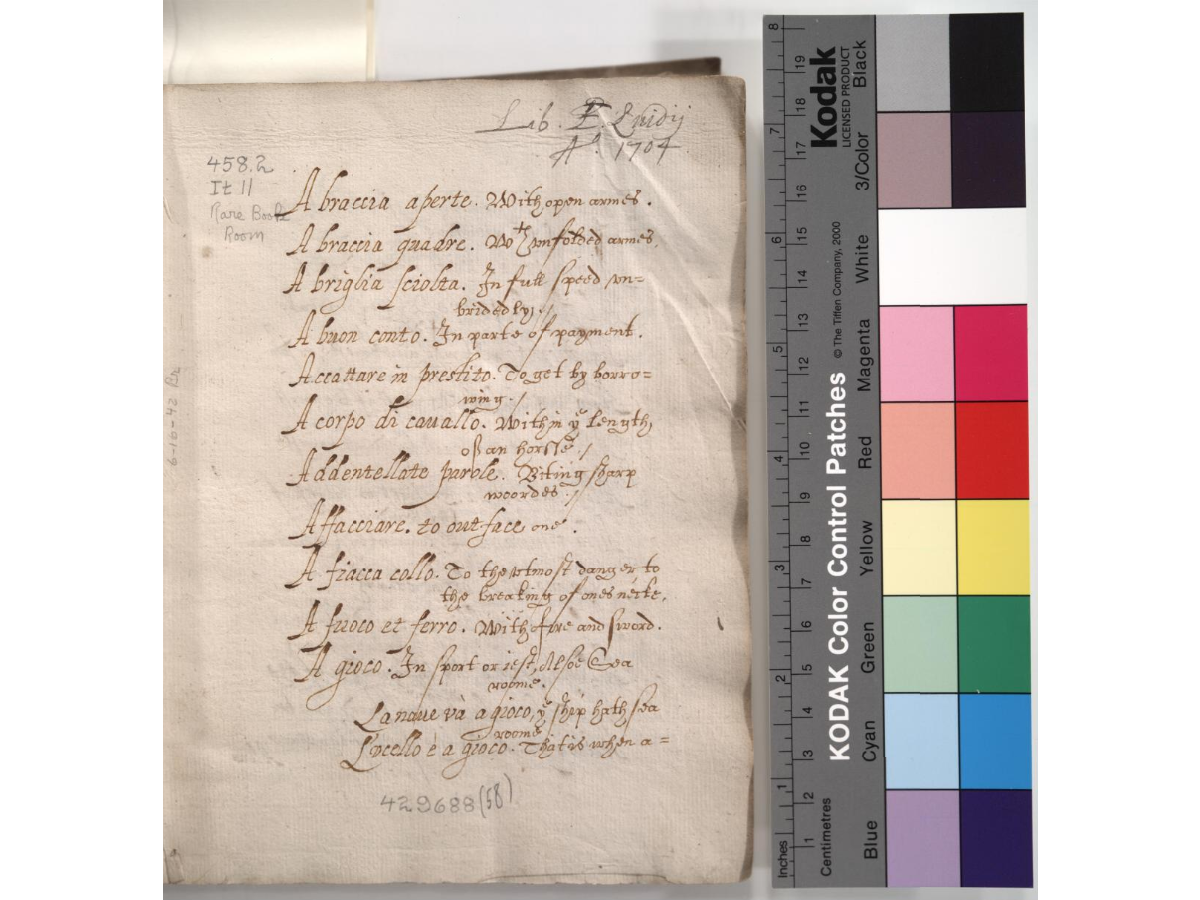 Lib. E. Luidij
A°. 1704
458.2
It 11
Rare Book
Room
A braccia aperte. With open armes.
A braccia quadre. Wth vnfolded armes.
A briglia sciolta. In full speed vn=
bridedly./
A buon conto. In parte of payment.
Accattare in prestito. To get by borro=
wing./
A corpo di cauallo. Within ye length
of an horsse./
Addentellate parole. Biting sharp
woordes./
Affacciare. to outface one.
A fiacca collo. To the vtmost danger to
the breaking of ones necke.
A fuoco et ferro. With fire and sword.
A gioco. In sport or iest, Alsoe Sea
roome.
La naue và a gioco, ye ship hath sea
roome
L'vcello è a gioco. That is when a=
429688(58)
6-10-42 Br
Kodak
LICENSED PRODUCT
KODAK Color Control Patches
© The Tiffen Company, 2000
Black
3/Color
White
Magenta
Red
Yellow
Green
Cyan
Blue
Inches
1
2
3
4
5
6
7
8
Centimetres
1
2
3
4
5
6
7
8
9
10
11
12
13
14
15
16
17
18
19